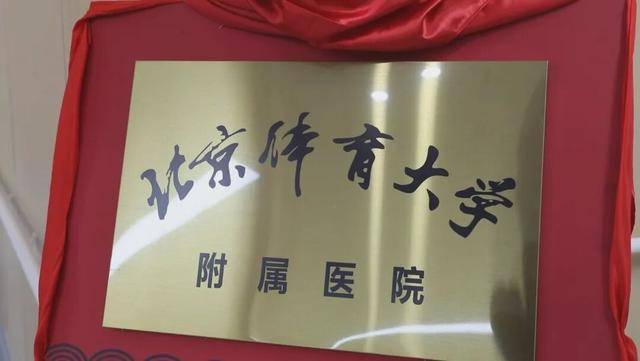 北京体育大学
附属医院